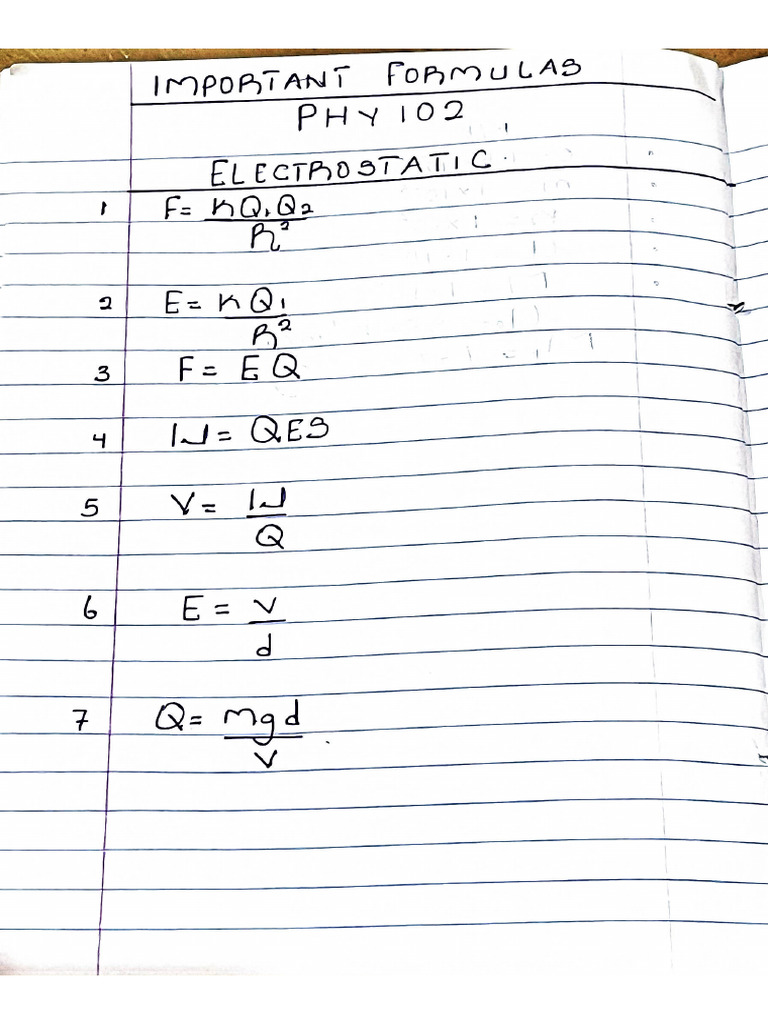 IMPORTANT FORMULAS
PHY 102
ELECTROSTATIC.
1 F = KQ₁Q₂
R²
2 E = KQ₁
R²
3 F = EQ
4 W = QES
5 V = W
Q
6 E = V
d
7 Q = mgd
V